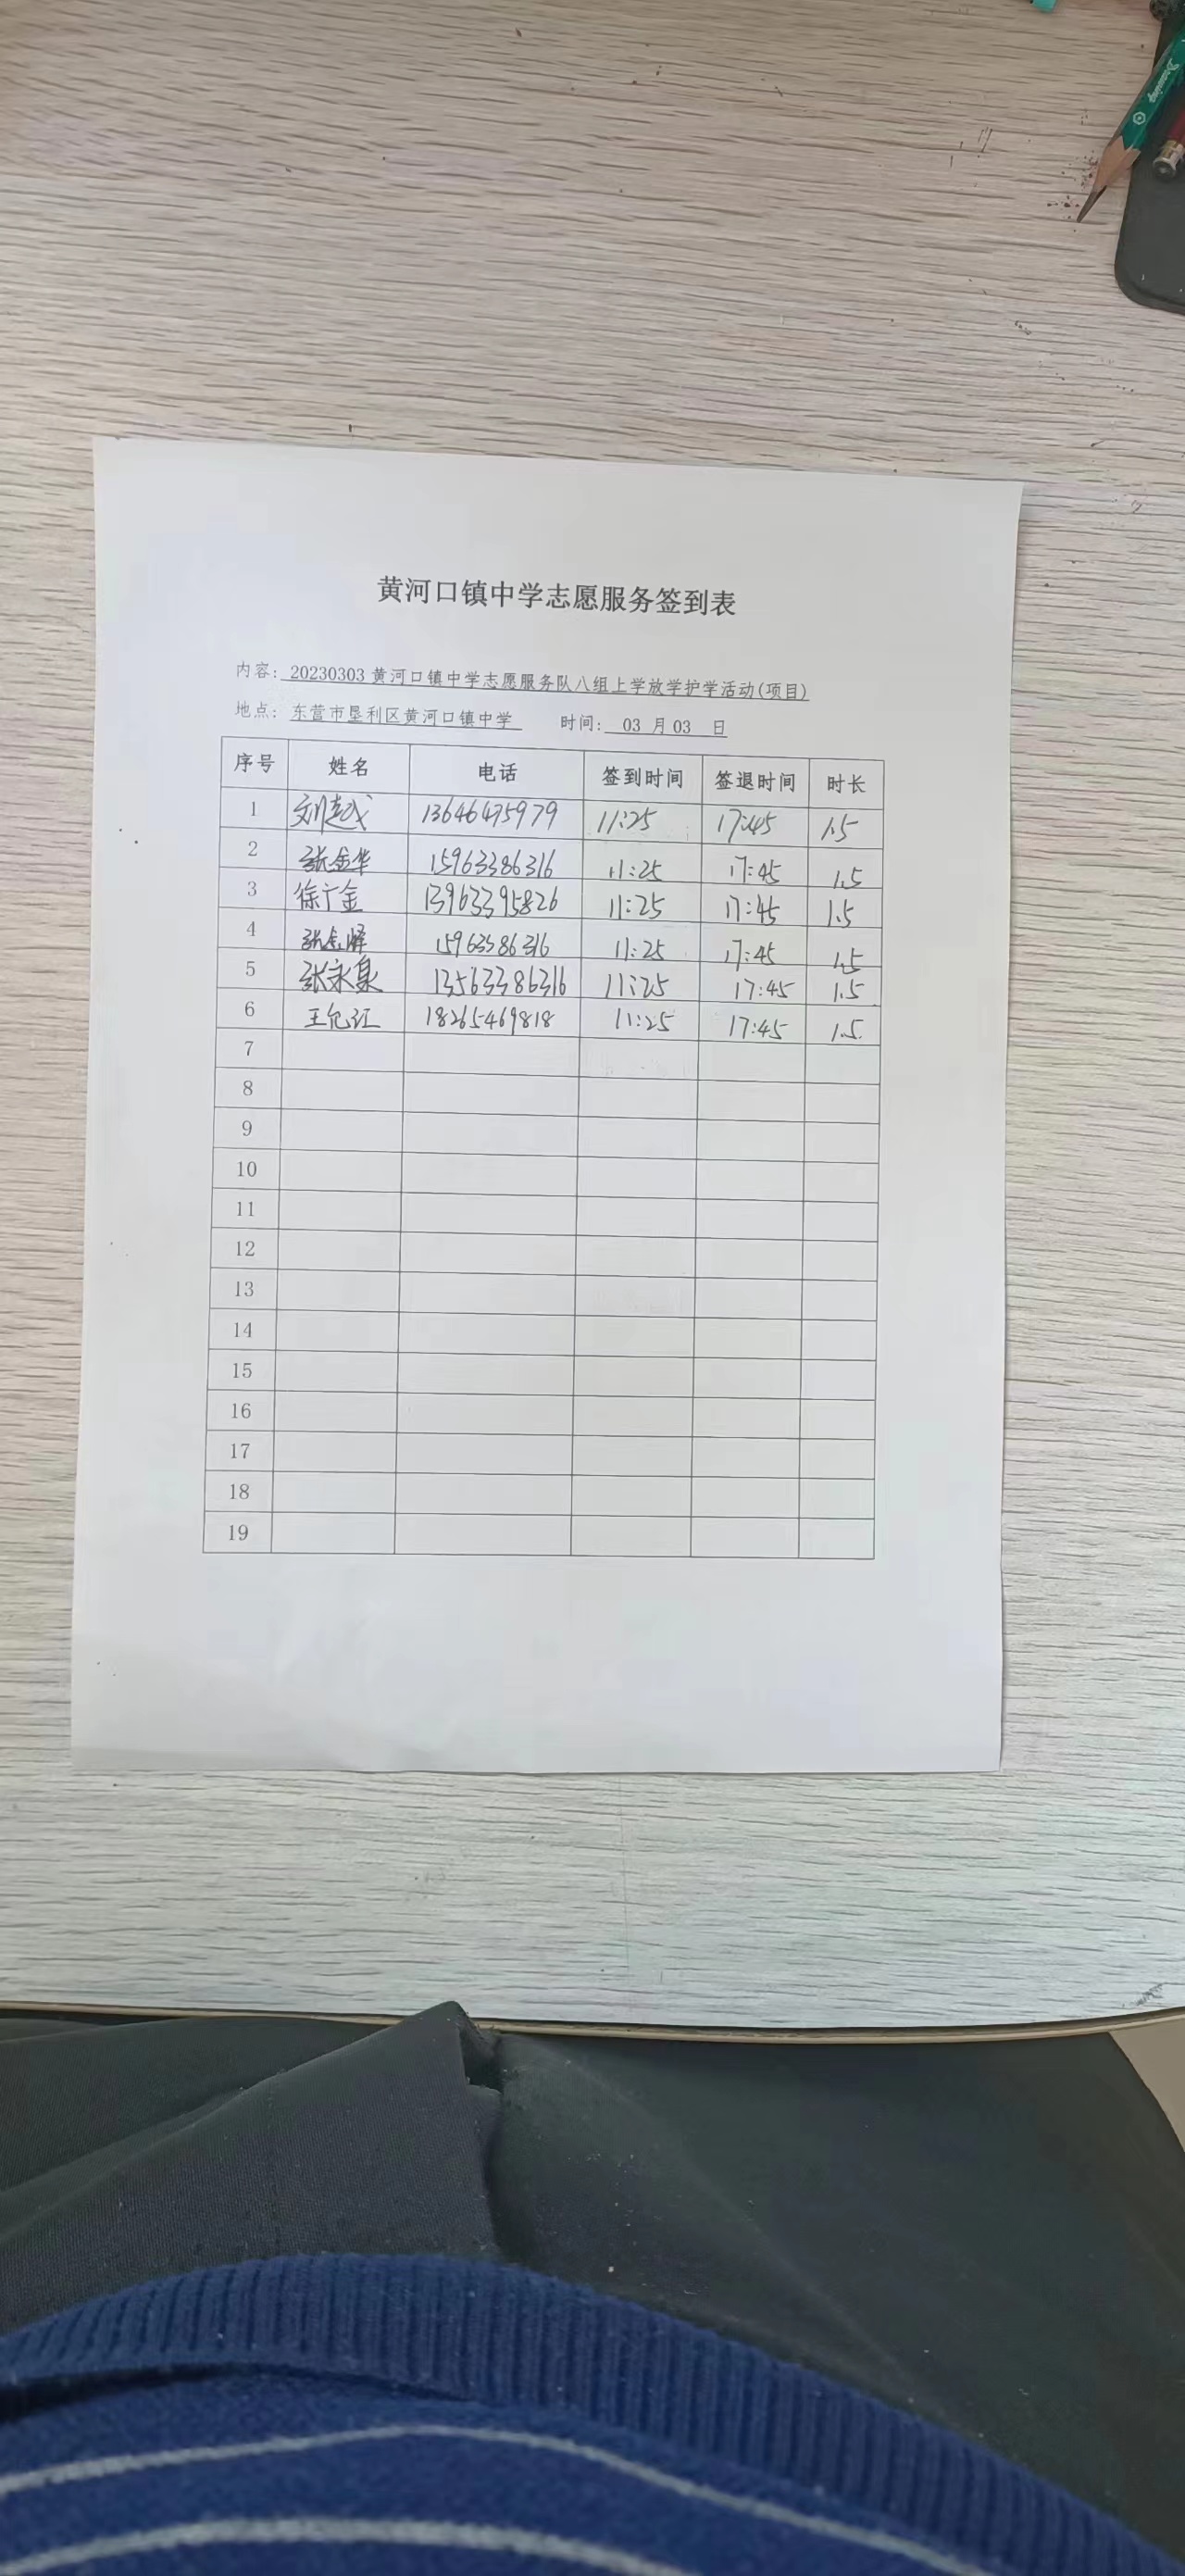 Drawing
黄河口镇中学志愿服务签到表
内容: 20230303 黄河口镇中学志愿服务队八组上学放学护学活动(项目)
地点: 东营市垦利区黄河口镇中学 时间: 03 月 03 日
序号 姓名 电话 签到时间 签退时间 时长
1 刘 13646475979 11:25 17:45 1.5
2 张金华 15963386316 11:25 17:45 1.5
3 徐广金 13963395826 11:25 17:45 1.5
4 张 15963586316 11:25 17:45 1.5
5 张永泉 13563386316 11:25 17:45 1.5
6 王 18265469818 11:25 17:45 1.5
7
8
9
10
11
12
13
14
15
16
17
18
19